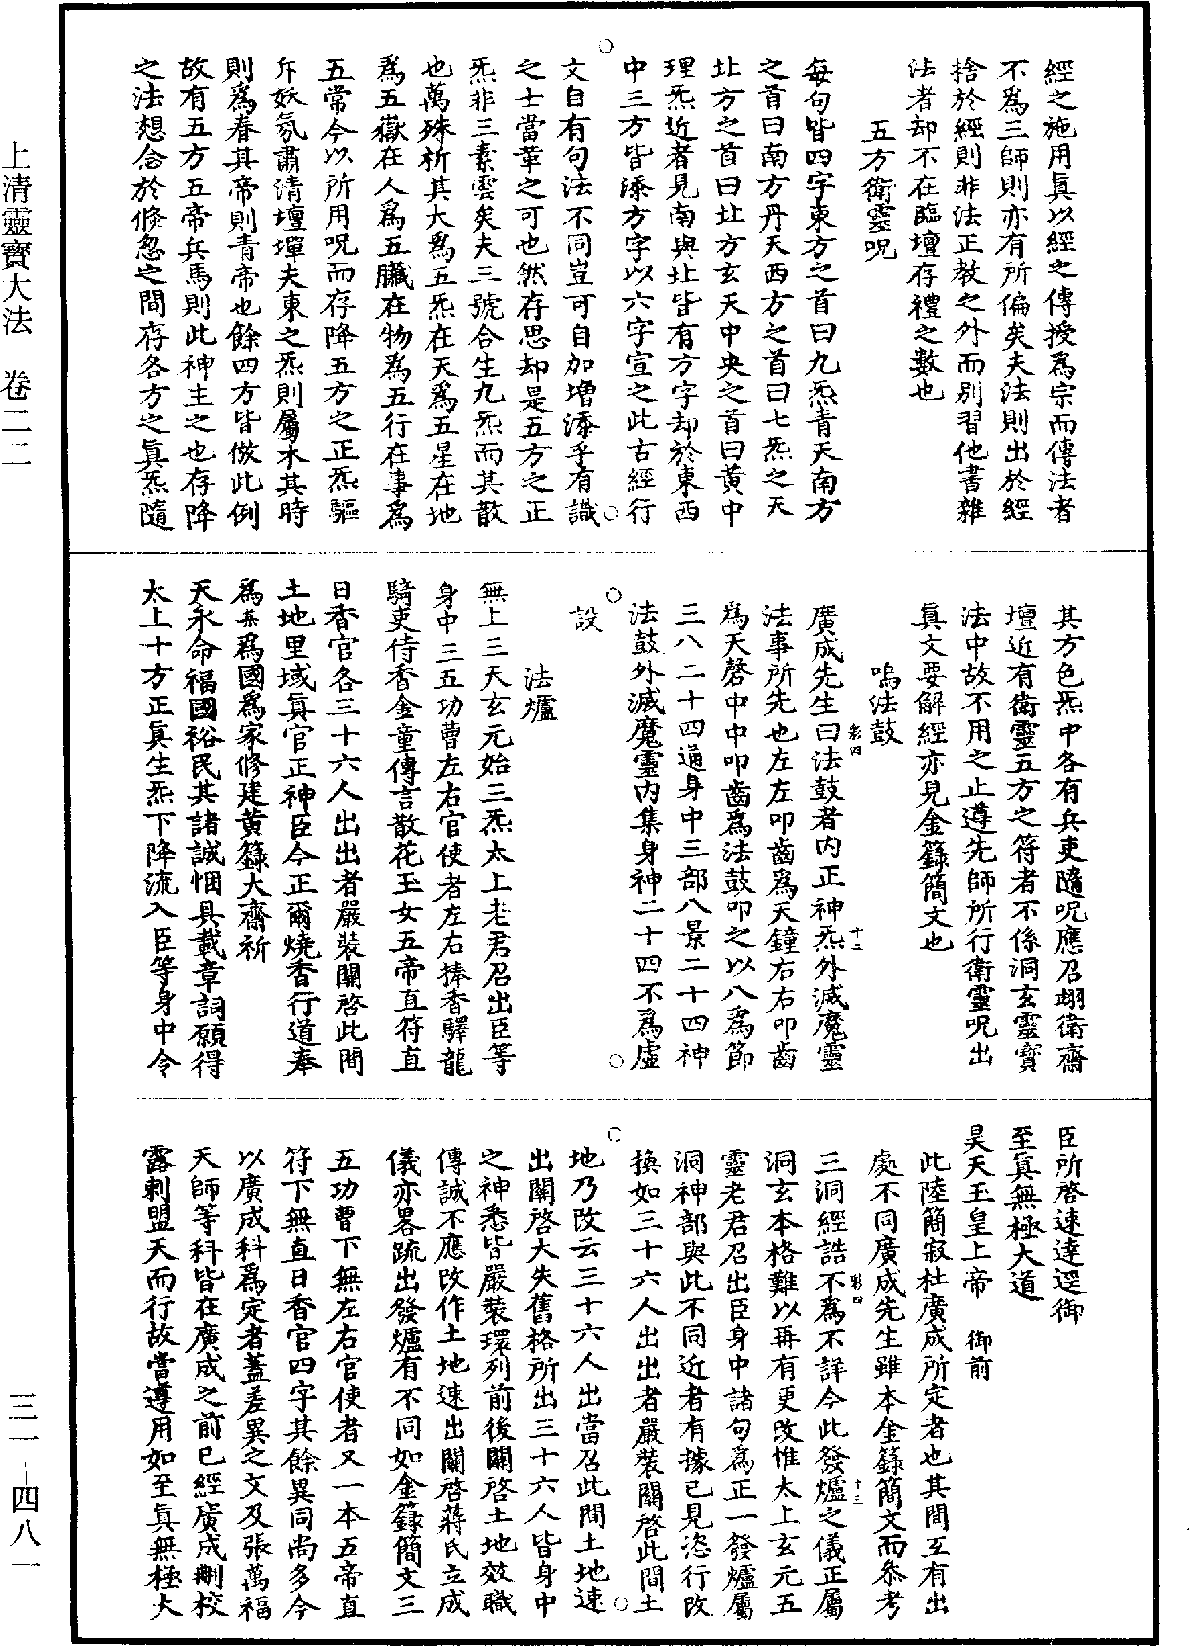 上清靈寶大法　卷二二
三一-四八一
經之施用眞以經之傳授爲宗而傳法者
不爲三師則亦有所偏矣夫法則出於經
捨於經則非法正教之外而別習他書雜
法者却不在臨壇存禮之數也
五方衛靈呪
每句皆四字東方之首曰九炁青天南方
之首曰南方丹天西方之首曰七炁之天
北方之首曰北方玄天中央之首曰黄中
理炁近者見南與北皆有方字却於東西
中三方皆添方字以六字宣之此古經行
文自有句法不同豈可自加增添乎有識
之士當革之可也然存思却是五方之正
炁非三素雲矣夫三號合生九炁而其散
也萬殊析其大爲五炁在天爲五星在地
爲五嶽在人爲五臟在物爲五行在事爲
五常今以所用呪而存降五方之正炁驅
斥妖氛肅清壇墠夫東之炁則屬木其時
則爲春其帝則青帝也餘四方皆倣此例
故有五方五帝兵馬則此神主之也存降
之法想念於倐忽之間存各方之眞炁隨
其方色炁中各有兵吏隨呪應召翊衛齋
壇近有衛靈五方之符者不係洞玄靈寶
法中故不用之止遵先師所行衛靈呪出
眞文要解經亦見金籙簡文也
鳴法鼓
廣成先生曰法鼓者内正神炁外滅魔靈
法事所先也左左叩齒爲天鐘右右叩齒
爲天磬中中叩齒爲法鼓叩之以八爲節
三八二十四通身中三部八景二十四神
法鼓外滅魔靈内集身神二十四不爲虛
設
法爐
無上三天玄元始三炁太上老君召出臣等
身中三五功曹左右官使者左右捧香驛龍
騎吏侍香金童傳言散花玉女五帝直符直
日香官各三十六人出出者嚴裝關啓此間
土地里域眞官正神臣今正爾燒香行道奉
爲某爲國爲家修建黄籙大齋祈
天永命福國裕民其諸誠悃具載章詞願得
太上十方正眞生炁下降流入臣等身中令
臣所啓速達逕御
至眞無極大道
昊天玉皇上帝　御前
此陸簡寂杜廣成所定者也其間互有出
處不同廣成先生雖本金籙簡文而叅考
三洞經誥不爲不詳今此發爐之儀正屬
洞玄本格難以再有更改惟太上玄元五
靈老君召出臣身中諸句爲正一發爐屬
洞神部與此不同近者有據已見恣行改
換如三十六人出出者嚴裝關啓此間土
地乃改云三十六人出當召此間土地速
出關啓大失舊格所出三十六人皆身中
之神悉皆嚴裝環列前後關啓土地效職
傳誠不應改作土地速出關啓蔣氏立成
儀亦畧疏出發爐有不同如金籙簡文三
五功曹下無左右官使者又一本五帝直
符下無直日香官四字其餘異同尚多今
以廣成科爲定者蓋差異之文及張萬福
天師等科皆在廣成之前已經廣成刪校
露刺盟天而行故當遵用如至眞無極大